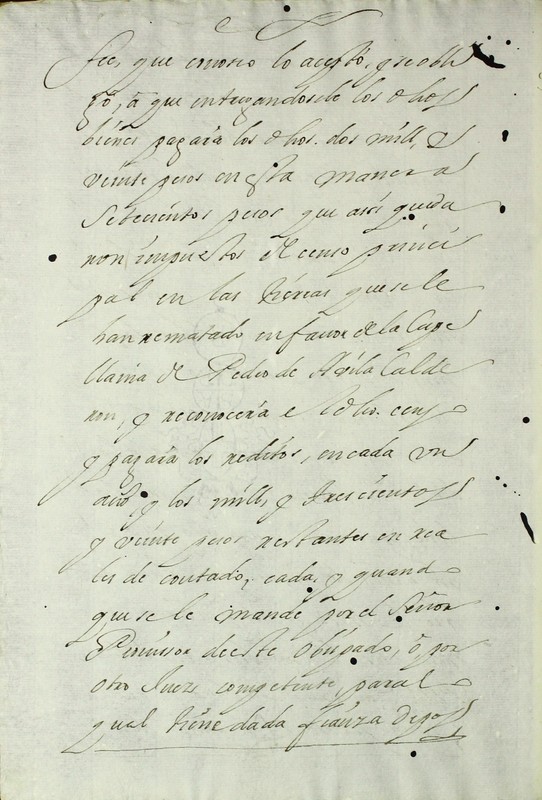 fee, que conosco lo aceptó, y se obli
gó, á que entregandosele los dhos
bienes pagará los dhos. dos mill, y
veinte pesos en esta manera
Setecientos pesos que assi queda
ron impuestos de censo princi
pal en las tierras que se le
han rematado en favor de la Cape
llania de Pedro de Avila Calde
ron, y reconocerá el dho. censo
y pagará los reditos, en cada un
año, y los mill, y trescientos
y veinte pesos restantes en rea
les de contado, cada, y quando
que se le mande por el Señor
Provissor de este Obispado, ó por
otro Juez competente, para lo
qual tiene dada fianza